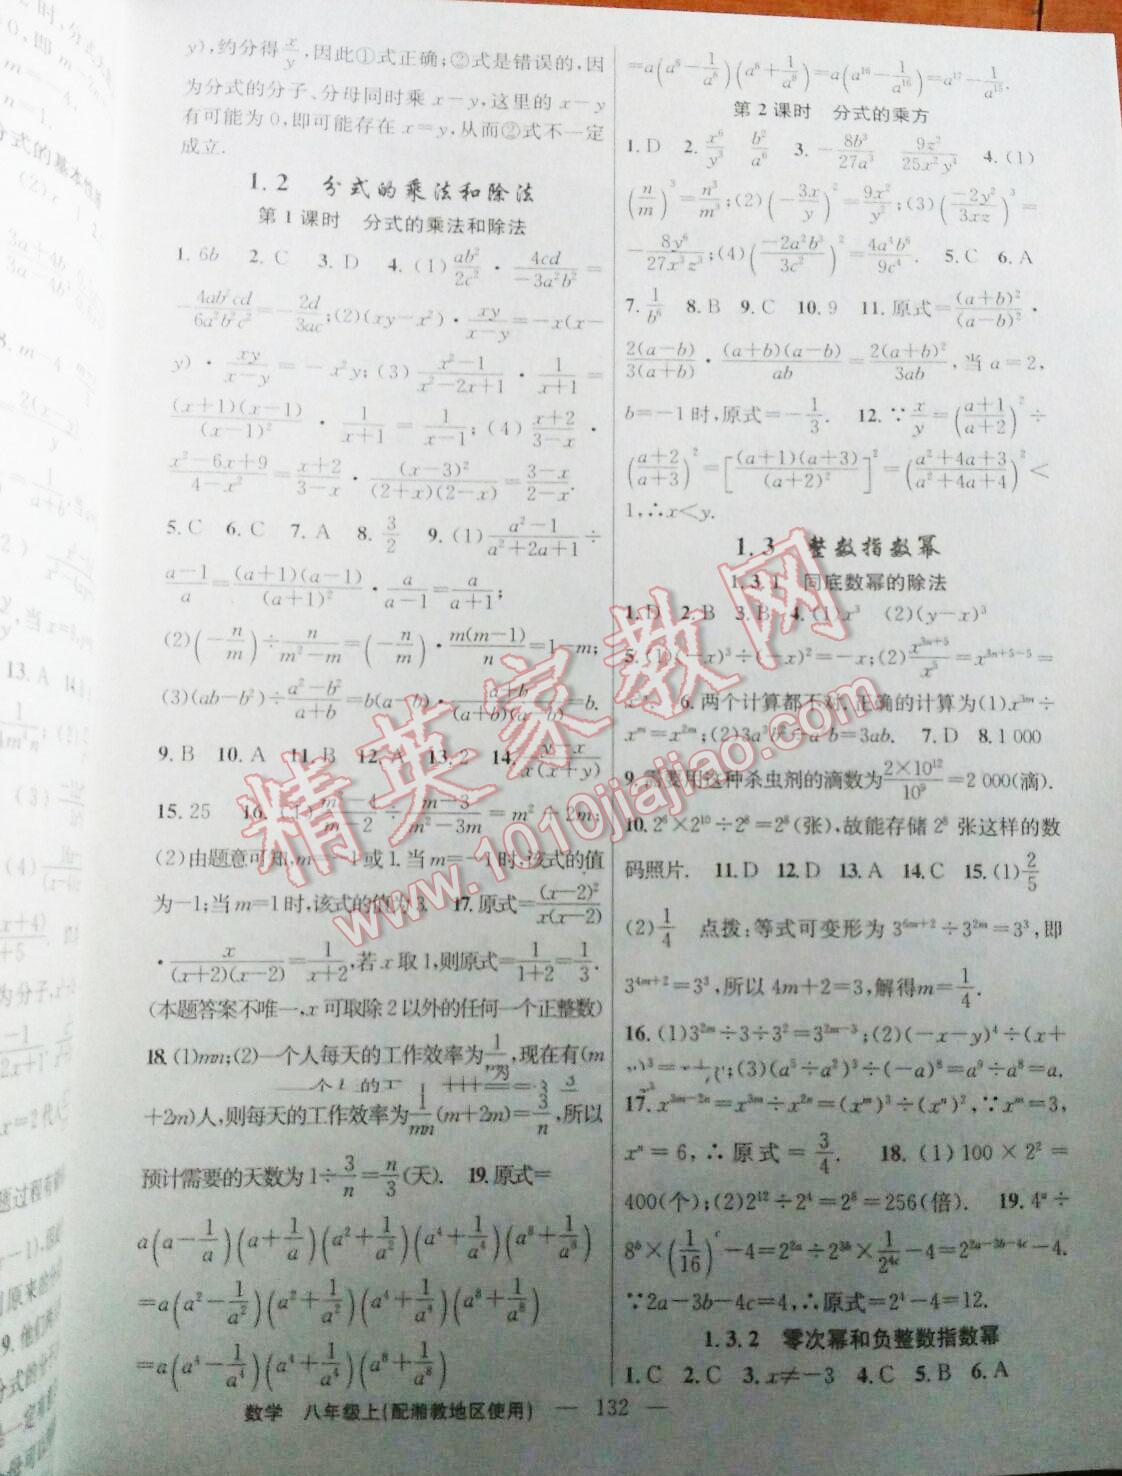 y),约分得x/y,因此①式正确;②式是错误的,因
为分式的分子、分母同时乘 x-y,这里的 x-y
有可能为0,即可能存在 x=y,从而②式不一定
成立.
1.2 分式的乘法和除法
第1课时 分式的乘法和除法
1. 6b 2. C 3. D 4. (1) ab²/2c² · 4cd/-3a²b² =
-4ab²cd/6a²b²c² = -2d/3ac;(2)(xy-x²) · xy/x-y = -x(x-
y) · xy/x-y = -x²y;(3) x²-1/x²-2x+1 · 1/x+1 =
(x+1)(x-1)/(x-1)² · 1/x+1 = 1/x-1;(4) x+2/3-x ·
x²-6x+9/4-x² = x+2/3-x · (x-3)²/(2+x)(2-x) = 3-x/2-x.
5. C 6. C 7. A 8. 3/2 9. (1) a²-1/a²+2a+1 ÷
a-1/a = (a+1)(a-1)/(a+1)² · a/a-1 = a/a+1;
(2)(-n/m)÷n/m²-m = (-n/m) · m(m-1)/n = 1-m;
(3)(ab-b²)÷a²-b²/a+b = b(a-b) · a+b/(a+b)(a-b) = b.
9. B 10. A 11. B 12. A 13. 2 14. y-x/x(x+y)
15. 25 16. (1) m²-4/m-2 ÷ m-3/m²-3m = m²+2m;
(2)由题意可知,m=-1或1.当m=-1时,该式的值
为-1;当m=1时,该式的值为3. 17. 原式=(x-2)²/x(x-2)
· x/(x+2)(x-2) = 1/x+2,若 x 取1,则原式=1/1+2=1/3.
(本题答案不唯一,x 可取除2以外的任何一个正整数)
18. (1)mn;(2)一个人每天的工作效率为1/mn,现在有(m
+2m)人,则每天的工作效率为1/mn(m+2m)=3/n,所以
预计需要的天数为1÷3/n=n/3(天). 19. 原式=
a(a-1/a)(a+1/a)(a²+1/a²)(a⁴+1/a⁴)(a⁸+1/a⁸)
=a(a²-1/a²)(a²+1/a²)(a⁴+1/a⁴)(a⁸+1/a⁸)
=a(a⁴-1/a⁴)(a⁴+1/a⁴)(a⁸+1/a⁸)
=a(a⁸-1/a⁸)(a⁸+1/a⁸)=a(a¹⁶-1/a¹⁶)=a¹⁷-1/a¹⁵.
第2课时 分式的乘方
1. D 2. x⁶/y³ b²/a⁶ 3. -8b³/27a³ 9z²/25x²y⁴ 4. (1)
(n/m)³=n³/m³;(2)(-3x/y)²=9x²/y²;(3)(-2y²/3xz)³=
-8y⁶/27x³z³;(4)(-2a²b³/3c²)²=4a⁴b⁶/9c⁴. 5. C 6. A
7. 1/b⁶ 8. B 9. C 10. 9 11. 原式=(a+b)²/(a-b)² ·
2(a-b)/3(a+b) · (a+b)(a-b)/ab = 2(a+b)²/3ab,当 a=2,
b=-1时,原式=-1/3. 12. ∵x/y=(a+1/a+2)²÷
(a+2/a+3)²=[(a+1)(a+3)/(a+2)²]²=(a²+4a+3/a²+4a+4)²<
1,∴x<y.
1.3 整数指数幂
1.3.1 同底数幂的除法
1. D 2. B 3. B 4. (1)x³ (2)(y-x)³
5. (1)(-x)³÷(-x)²=-x;(2)x³ⁿ⁺⁵/x⁵=x³ⁿ⁺⁵⁻⁵=
6. 两个计算都不对.正确的计算为(1)x³ᵐ÷
xᵐ=x²ᵐ;(2)3a³b²÷a²b=3ab. 7. D 8. 1 000
9. 需要用这种杀虫剂的滴数为2×10¹²/10⁹=2 000(滴).
10. 2⁶×2¹⁰÷2⁸=2⁸(张),故能存储2⁸张这样的数
码照片. 11. D 12. D 13. A 14. C 15. (1)2/5
(2)1/4 点拨:等式可变形为3⁶ᵐ⁺²÷3²ᵐ=3³,即
3⁴ᵐ⁺²=3³,所以4m+2=3,解得m=1/4.
16. (1)3²ᵐ÷3÷3²=3²ᵐ⁻³;(2)(-x-y)⁴÷(x+
;(3)(a⁵÷a²)³÷(-a)⁸=a⁹÷a⁸=a.
17. x³ᵐ⁻²ⁿ=x³ᵐ÷x²ⁿ=(xᵐ)³÷(xⁿ)²,∵xᵐ=3,
xⁿ=6,∴原式=3/4. 18. (1)100×2²=
400(个);(2)2¹²÷2⁴=2⁸=256(倍). 19. 4ᵃ÷
8ᵇ×(1/16)ᶜ-4=2²ᵃ÷2³ᵇ×1/2⁴ᶜ-4=2²ᵃ⁻³ᵇ⁻⁴ᶜ-4.
∵2a-3b-4c=4,∴原式=2⁴-4=12.
1.3.2 零次幂和负整数指数幂
1. C 2. C 3. x≠-3 4. C 5. B 6. A
数学 八年级上(配湘教地区使用) — 132 —
精英家教网
www.1010jiajiao.com